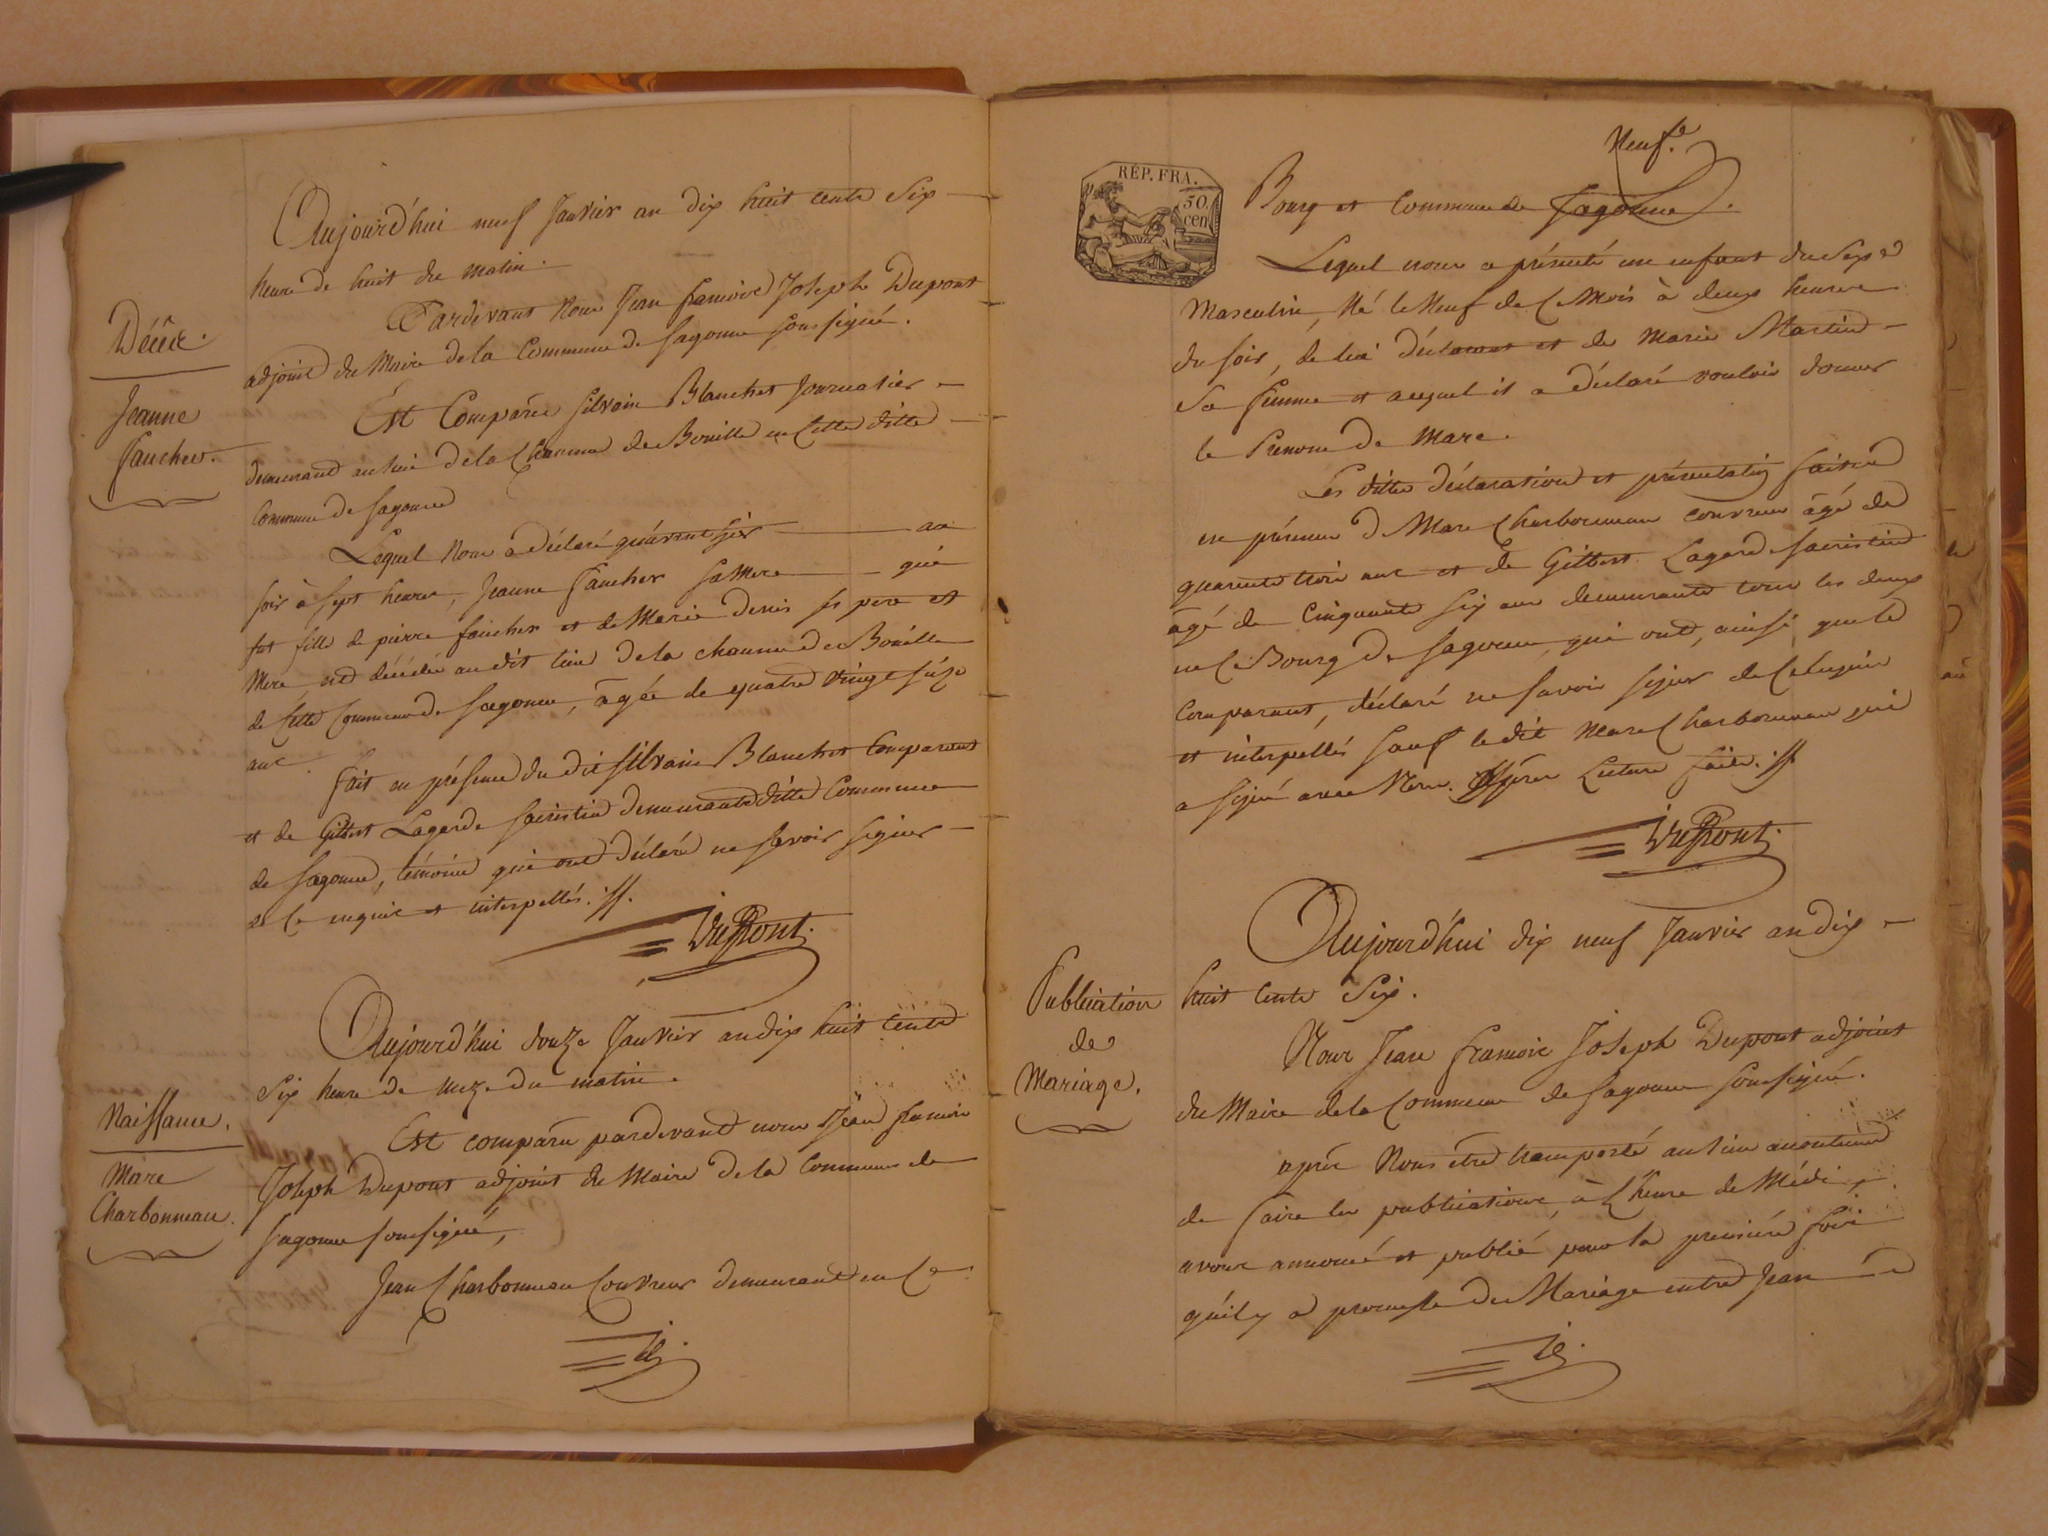 Aujourd'hui neuf Janvier an dix huit cents Six
heure de huit du matin.
Pardevant Nous Jean francois Joseph Dupont
adjoint du Maire de la Commune de Sagonne soussigné.
Décès.
Jeanne
faucher.
Est Comparû Silvain Blanchet Journalier
demeurant au lieu de la Chaume de Bouille en Cette ditte
Commune de Sagonne
Lequel Nous a déclaré au
soir à sept heures, Jeanne faucher sa Mere qui
fut fille de pierre faucher et de Marie denis ses pere et
Mere, est décédée au dit lieu de la chaume de Bouille
de Cette Commune de Sagonne, âgée de quatre vingt seize
ans.
fait en présence du dit Silvain Blanchet Comparant
et de Gilbert Lagarde sacristin demeurants ditte Commune
de Sagonne, témoins qui ont déclaré ne savoir signer
de ce requis et interpellés.
Dupont.
Aujourd'hui douze Janvier an dix huit cents
Six heure de unze du matin.
Naissance.
Marc
Charbonneau.
Est comparû pardevant nous Jean francois
Joseph Dupont adjoint du Maire de la Commune de
Sagonne soussigné,
Jean Charbonneau Couvreur demeurant en Ce
RÉP. FRA.
50.
cen
Neuf.e
Bourg et Commune de Sagonne.
Lequel nous a présenté un enfant du Sexe
Masculin, Né le Neuf de Ce Mois à deux heures
du soir, de lui déclarant et de Marie Martin
Sa femme et auquel il a déclaré vouloir donner
le Prenom de Marc.
Les dittes déclaration et présentation faites
en présence de Marc Charbonneau couvreur âgé de
quarante trois ans et de Gilbert Lagarde sacristin
âgé de Cinquante six ans demeurants tous les deux
en Ce Bourg de Sagonne, qui ont, ainsi que le
Comparant, déclaré ne savoir signer de Ce Enquis
et interpellés sauf le dit Marc Charbonneau qui
a signé avec Nous. Après Lecture faite.
Dupont.
Aujourd'hui dix neuf Janvier an dix
huit Cents Six.
Publication
de
Mariage.
Nous Jean francois Joseph Dupont adjoint
du Maire de la Commune de Sagonne soussigné.
après Nous être transporté au lieu accoutumé
de faire les publications, à L'heure de Médi,
avons annoncé et publié pour la premiére fois
qu'il y a promesse de Mariage entre Jean